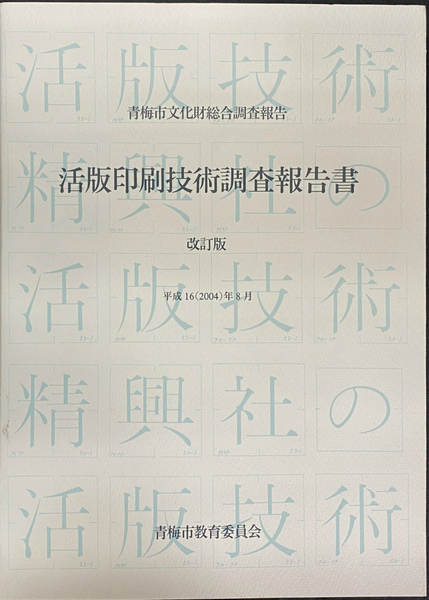 活版技術
青梅市文化財総合調査報告
精興社の
活版印刷技術調査報告書
改訂版
平成16(2004)年8月
活版技術
精興社の
活版技術
青梅市教育委員会